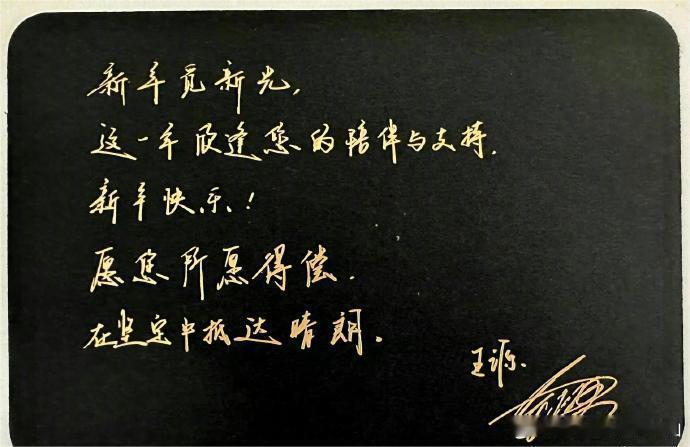 新年觅新光，
这一年欣逢您的陪伴与支持.
新年快乐！
愿您所愿得偿.
在坚定中抵达晴朗。
王源.